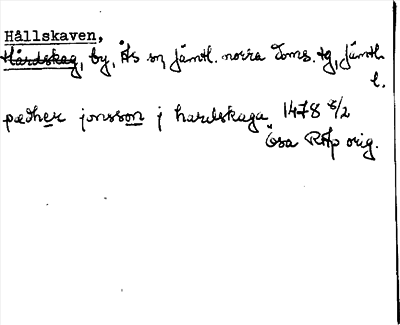 Hållskaven,
Hårdskag, by, Ås sn, Jämtl. norra Doms. tg, Jämtl.
l.
pædher jonsson j hardskaga 1478 8/2
Ösa RAp orig.